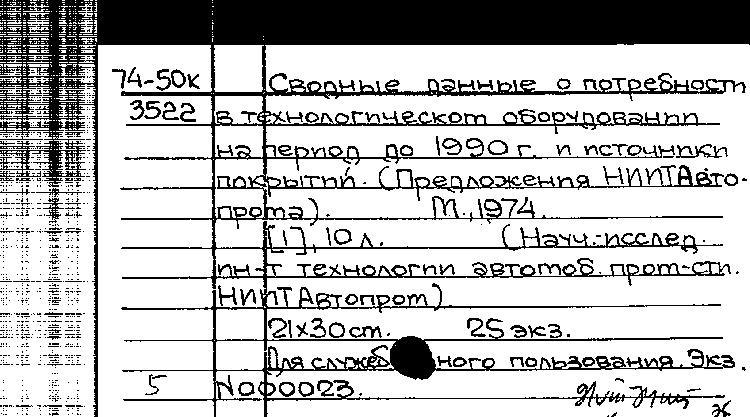 74-50к Сводные данные о потребности
3522 в технологическом оборудовании
на период до 1990 г. и источники
покрытий. (Предложения НИИТАвто-
прома). М., 1974.
[1], 10 л. (Науч.-исслед.
ин-т технологии автомоб. пром-сти.
НИИТАвтопром)
21х30 см. 25 экз.
Для служебного пользования. Экз.
5 №000023.